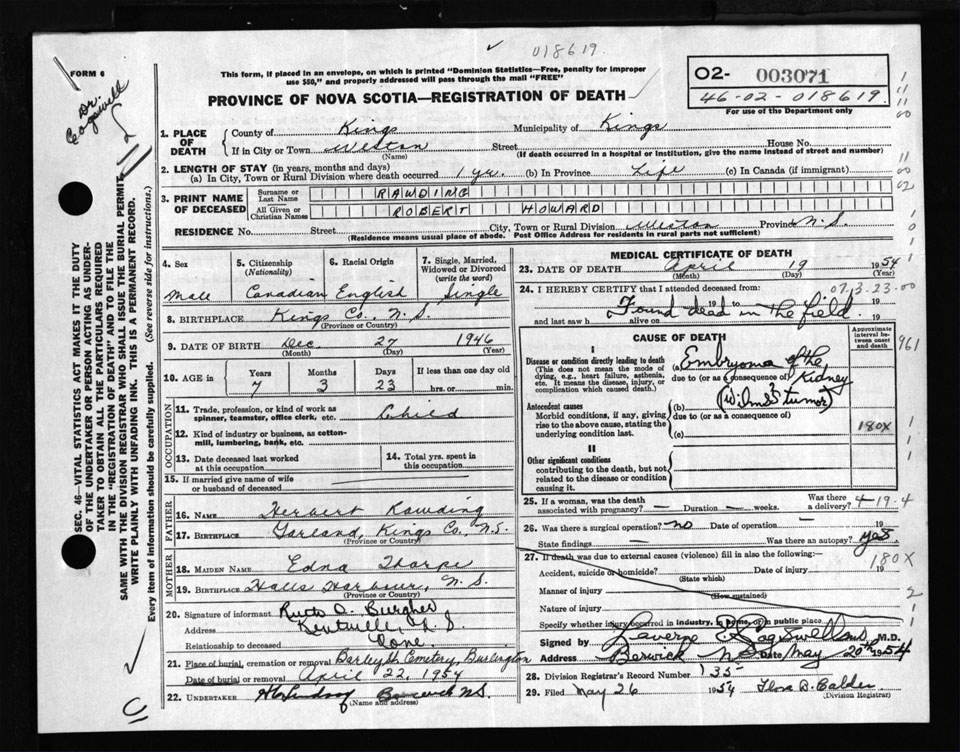 018619
FORM 6
Dr. Cogswell
This form, if placed in an envelope, on which is printed "Dominion Statistics—Free, penalty for improper
use $50," and properly addressed will pass through the mail "FREE"
PROVINCE OF NOVA SCOTIA—REGISTRATION OF DEATH
O2- 003071
46-02-018619
For use of the Department only
SEC. 46—VITAL STATISTICS ACT MAKES IT THE DUTY
OF THE UNDERTAKER OR PERSON ACTING AS UNDER-
TAKER TO OBTAIN ALL THE PARTICULARS REQUIRED
IN THE "REGISTRATION OF DEATH" AND TO FILE THE
SAME WITH THE DIVISION REGISTRAR WHO SHALL ISSUE THE BURIAL PERMIT.
WRITE PLAINLY WITH UNFADING INK. THIS IS A PERMANENT RECORD.
Every item of information should be carefully supplied. (See reverse side for instructions.)
1. PLACE OF DEATH County of Kings Municipality of Kings
If in City or Town Weston Street House No.
(Name) (If death occurred in a hospital or institution, give the name instead of street and number)
2. LENGTH OF STAY (in years, months and days)
(a) In City, Town or Rural Division where death occurred 1 yr. (b) In Province Life (c) In Canada (if immigrant)
3. PRINT NAME OF DECEASED Surname or Last Name RAWDING
All Given or Christian Names ROBERT HOWARD
RESIDENCE No. Street City, Town or Rural Division Weston Province N.S.
(Residence means usual place of abode. Post Office Address for residents in rural parts not sufficient)
4. Sex Male
5. Citizenship (Nationality) Canadian
6. Racial Origin English
7. Single, Married, Widowed or Divorced (write the word) Single
8. BIRTHPLACE Kings Co., N.S.
(Province or Country)
9. DATE OF BIRTH Dec. 27 1946
(Month) (Day) (Year)
10. AGE in Years 7 Months 3 Days 23 If less than one day hrs. or min.
OCCUPATION
11. Trade, profession, or kind of work as spinner, teamster, office clerk, etc. Child
12. Kind of industry or business, as cotton-mill, lumbering, bank, etc.
13. Date deceased last worked at this occupation
14. Total yrs. spent in this occupation
15. If married give name of wife or husband of deceased
FATHER
16. NAME Herbert Rawding
17. BIRTHPLACE Garland, Kings Co., N.S.
(Province or Country)
MOTHER
18. MAIDEN NAME Edna Thorpe
19. BIRTHPLACE Halls Harbour, N.S.
(Province or Country)
20. Signature of informant
Address
Relationship to deceased
21. Place of burial, cremation or removal Cemetery, Burlington
Date of burial or removal April 22, 1954
22. UNDERTAKER Berwick N.S.
(Name and address)
MEDICAL CERTIFICATE OF DEATH
23. DATE OF DEATH April 19 1954
(Month) (Day) (Year)
24. I HEREBY CERTIFY that I attended deceased from: 07.3.23-00
19 to 19
and last saw h alive on Found dead in the field. 19
CAUSE OF DEATH
Approximate interval between onset and death
961
I
Disease or condition directly leading to death
(This does not mean the mode of dying, e.g., heart failure, asthenia, etc. It means the disease, injury, or complication which caused death.)
(a) Embryoma of the
due to (or as a consequence of) Kidney
(Wilms tumor)
Antecedent causes
Morbid conditions, if any, giving rise to the above cause, stating the underlying condition last.
(b)
due to (or as a consequence of)
(c)
180X
II
Other significant conditions
contributing to the death, but not related to the disease or condition causing it.
25. If a woman, was the death associated with pregnancy? — Duration — weeks. Was there a delivery?
4-19-4
26. Was there a surgical operation? no Date of operation — 19
State findings — Was there an autopsy? yes
27. If death was due to external causes (violence) fill in also the following:—
180X
Accident, suicide or homicide? Date of injury 19
(State which)
Manner of injury
(How sustained)
Nature of injury
Specify whether injury occurred in industry, in home, or in public place
Signed by Laverne Cogswell M.D.
Address Berwick NS Date May 20th 1954
28. Division Registrar's Record Number 135
29. Filed May 26 1954 Flora B. Calder
(Division Registrar)